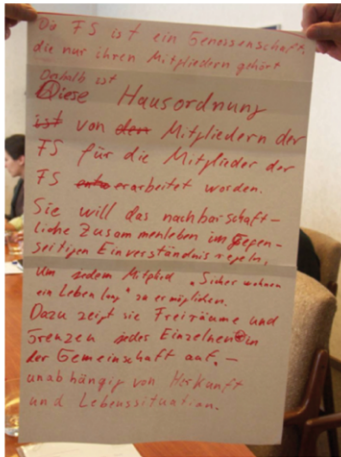 Die FS ist ein Genossenschaft,
die nur ihren Mitgliedern gehört
Deshalb ist
Diese Hausordnung
ist von den Mitgliedern der
FS für die Mitglieder der
FS erarbeitet worden.
Sie will das nachbarschaft-
liche Zusammenleben im gegen-
seitigen Einverständnis regeln,
um jedem Mitglied „Sicher wohnen
ein Leben lang" zu ermöglichen.
Dazu zeigt sie Freiräume und
Grenzen jedes Einzelnen in
der Gemeinschaft auf. –
unabhängig von Herkunft
und Lebenssituation.